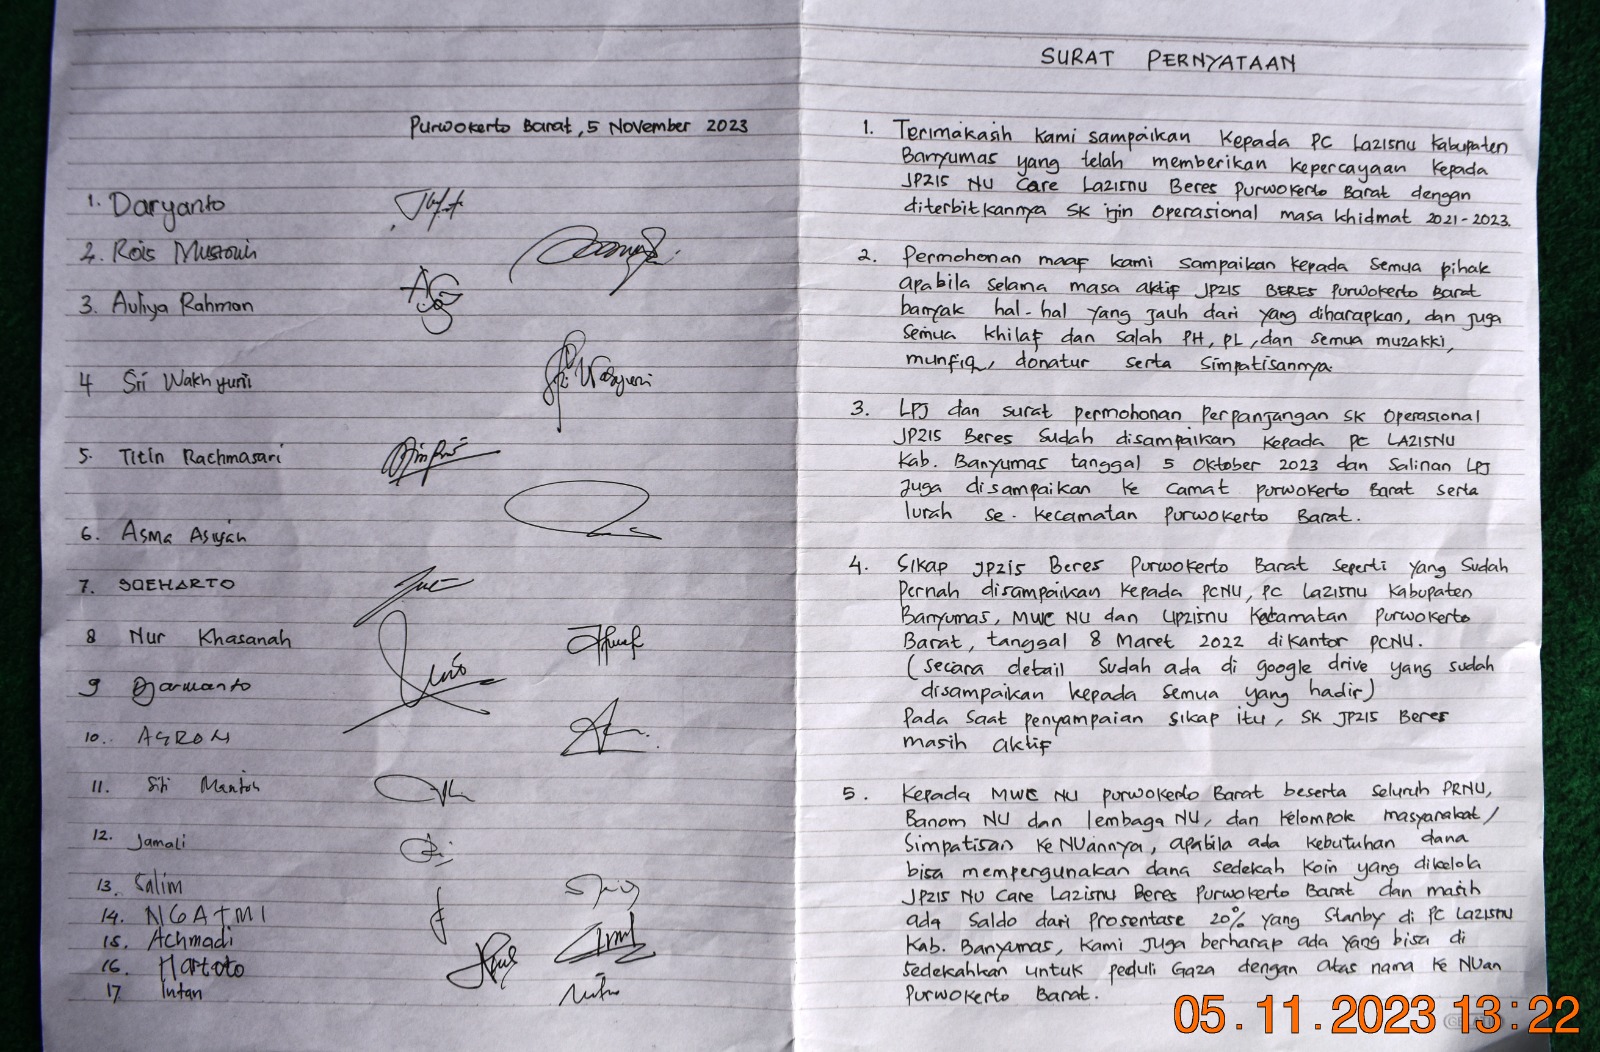 SURAT PERNYATAAN
1. Terimakasih kami sampaikan kepada PC Lazisnu Kabupaten
Banyumas yang telah memberikan kepercayaan kepada
JPZIS NU Care Lazisnu Beres Purwokerto Barat dengan
diterbitkannya SK ijin Operasional masa khidmat 2021-2023.
2. Permohonan maaf kami sampaikan kepada semua pihak
apabila selama masa aktif JPZIS BERES Purwokerto Barat
banyak hal-hal yang jauh dari yang diharapkan, dan juga
semua khilaf dan salah PH, PL, dan semua muzakki,
munfiq, donatur serta Simpatisannya.
3. LPJ dan surat permohonan perpanjangan SK Operasional
JPZIS Beres Sudah disampaikan kepada PC LAZISNU
Kab. Banyumas tanggal 5 Oktober 2023 dan Salinan LPJ
Juga disampaikan ke Camat Purwokerto Barat serta
lurah se-kecamatan Purwokerto Barat.
4. Sikap JPZIS Beres Purwokerto Barat seperti yang Sudah
Pernah disampaikan kepada PCNU, PC Lazisnu Kabupaten
Banyumas, MWC NU dan UPZISNU Kecamatan Purwokerto
Barat, tanggal 8 Maret 2022 dikantor PCNU.
(secara detail Sudah ada di google drive yang sudah
disampaikan kepada semua yang hadir)
Pada saat penyampaian sikap itu, SK JPZIS Beres
masih aktif
5. Kepada MWC NU Purwokerto Barat beserta seluruh PRNU,
Banom NU dan lembaga NU, dan kelompok masyarakat/
Simpatisan ke NUannya, apabila ada kebutuhan dana
bisa mempergunakan dana sedekah koin yang dikelola
JPZIS NU Care Lazisnu Beres Purwokerto Barat dan masih
ada Saldo dari Prosentase 20% yang Stanby di PC Lazisnu
Kab. Banyumas, kami Juga berharap ada yang bisa di
sedekahkan untuk peduli Gaza dengan atas nama ke NUan
Purwokerto Barat.
Purwokerto Barat, 5 November 2023
1. Daryanto
2. Rois
3. Auliya Rahman
4 Sri Wakhyuni
5. Titin Rachmasari
6. Asma Asiyah
7. SOEHARTO
8 Nur Khasanah
9 Djarwanto
10.
11. Siti
12. Jamali
13. Salim
14. NGATMI
15. Achmadi
16. Hartoto
17 Intan
05.11.2023 13:22